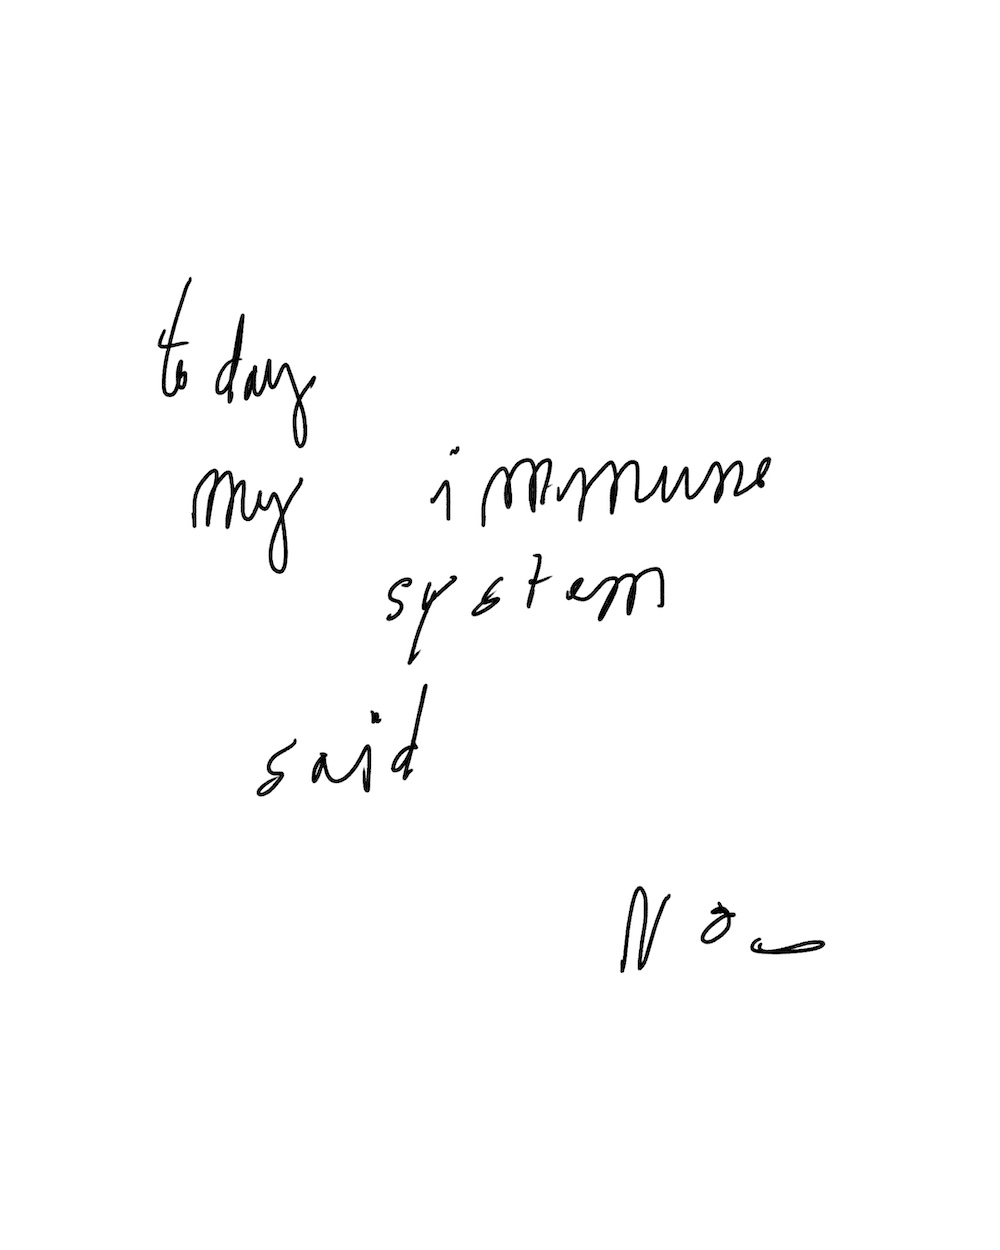 today
my immune
system
said
No